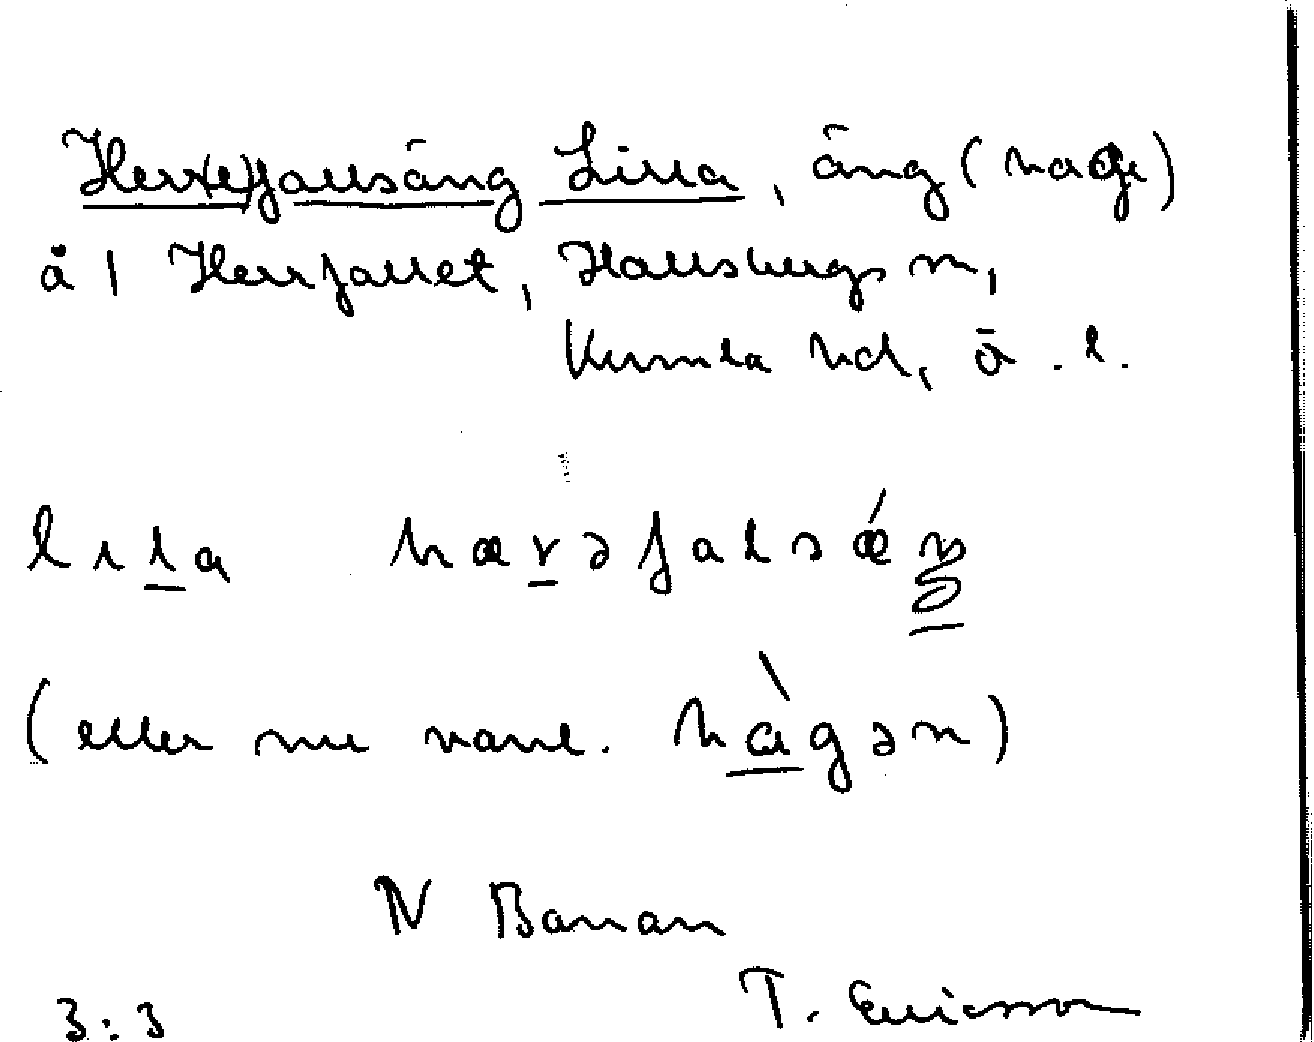 Herr(e)fallsäng Lilla, äng (hage)
å 1 Herrfallet, Hallsbergs sn,
Kumla hd, ö. l.
lıla hærəfalsǽŋ
(eller nu vanl. hàgən)
N Banan
T. Ericsson
3:3